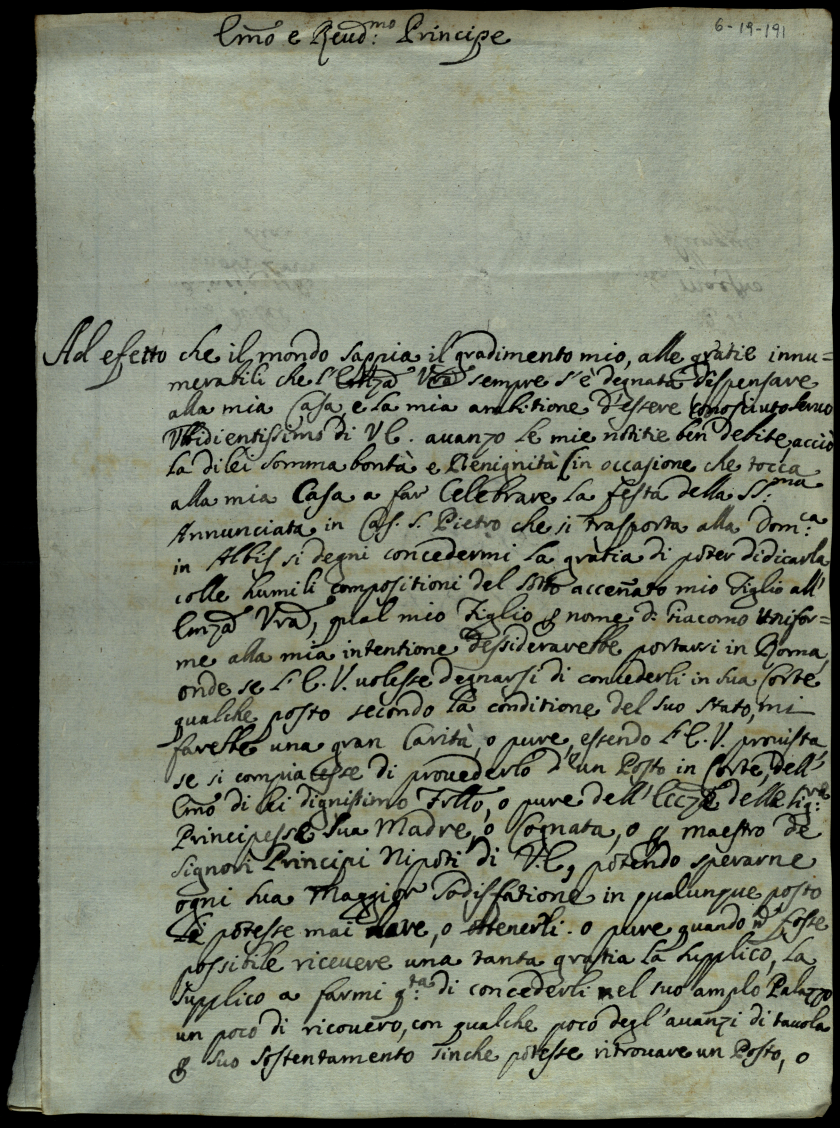 6-19-191
Em̃o e Reud:mo Principe
Ad efetto che il mondo sappia il gradimento mio, alle gratie innu=
merabili che l'Emza Vra sempre s'è degnata dispensare
alla mia Casa, e la mia ambitione d'essere conosciuto seruo
Vbidientissimo di V.E. auanzo le mie notitie ben debite, acciò
la di lei somma bontà e Benignità (in occasione che tocca
alla mia Casa a far Celebrare la festa della SS:ma
Annunciata in Cas. S. Pietro che si trasporta alla Dom:ca
in Albis si degni concedermi la gràtia di poter didicarla
colle humili compositioni del sotto accen̄ato mio Figlio all'
Emza Vra, qual mio Figlio p nome D: Giacomo Vnifor=
me alla mia intentione dessiderarebbe portarsi in Roma,
onde se l'E.V. uolesse degnarsi di concederli in sua Corte
qualche posto secondo la conditione del suo stato, mi
farebbe una gran Carità, o pure, essendo l'E.V. prouista,
se si compiacesse di prouederlo d'un Posto in Corte, dell'
Em̃o di lei dignissimo Frĩto, o pure dell'Eccze delle Sig:re
Principesse sua Madre, o Cognata, o p maestro de
Signori Principi Nipoti di V.E, potendo sperarne
ogni sua Maggior sodisfatione in qualunque posto
Le potesse mai dare, o ottenerli. o pure quando nõ fosse
possibile riceuere una tanta gratia la supplico, la
supplico a farmi g:ta di concederli nel suo amplo Palazzo
un poco di ricouero, con qualche poco degl'auanzi di tauola
p suo sostentamento sinche potesse ritrouare un Posto, o